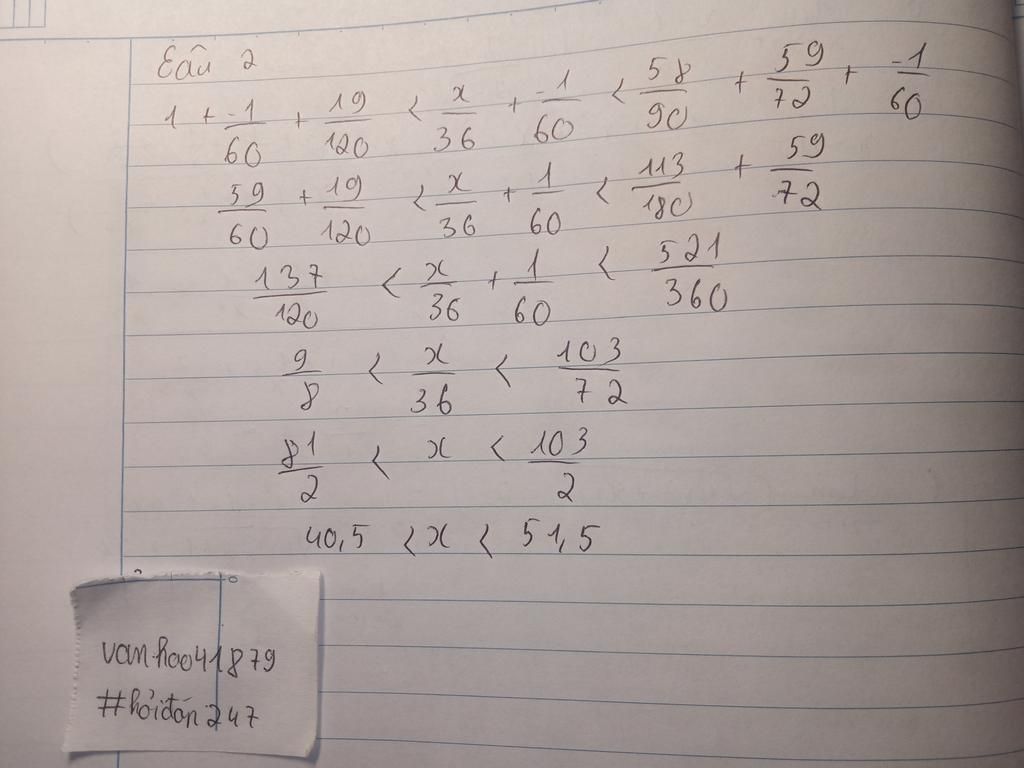 Câu 2
1 + -1/60 + 19/120 < x/36 + -1/60 < 58/90 + 59/72 + -1/60
59/60 + 19/120 < x/36 + 1/60 < 113/180 + 59/72
137/120 < x/36 + 1/60 < 521/360
9/8 < x/36 < 103/72
81/2 < x < 103/2
40,5 < x < 51,5
vanhao41879
#hỏiđáp247